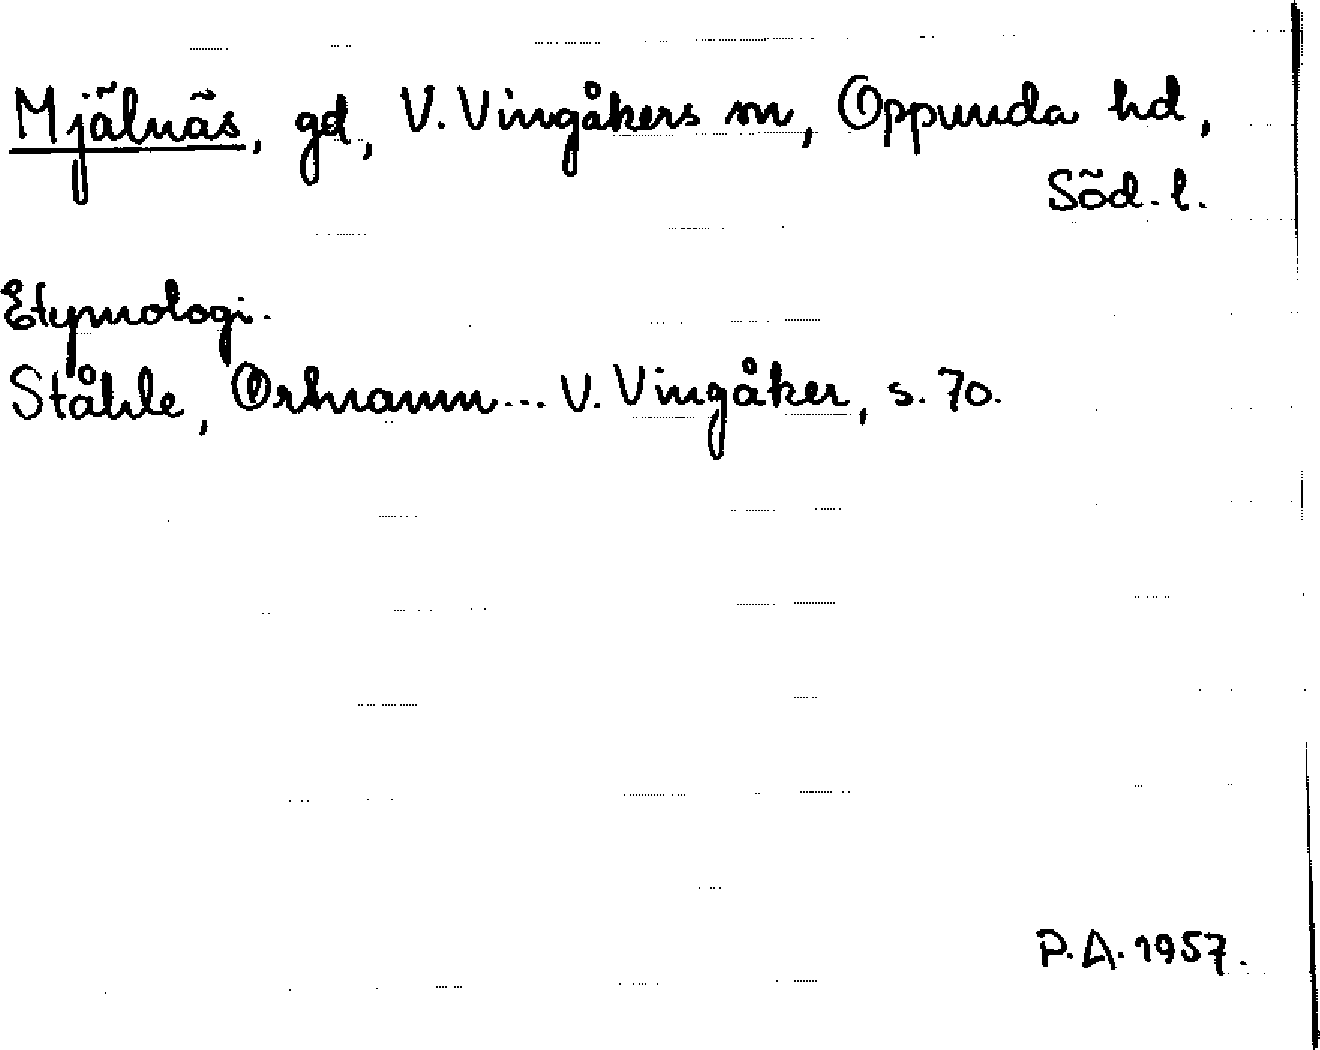 Mjälnäs, gd, V. Vingåkers sn, Oppunda hd,
Söd. l.
Etymologi.
Ståhle, Ortnamn... V. Vingåker, s. 70.
P.A. 1957.